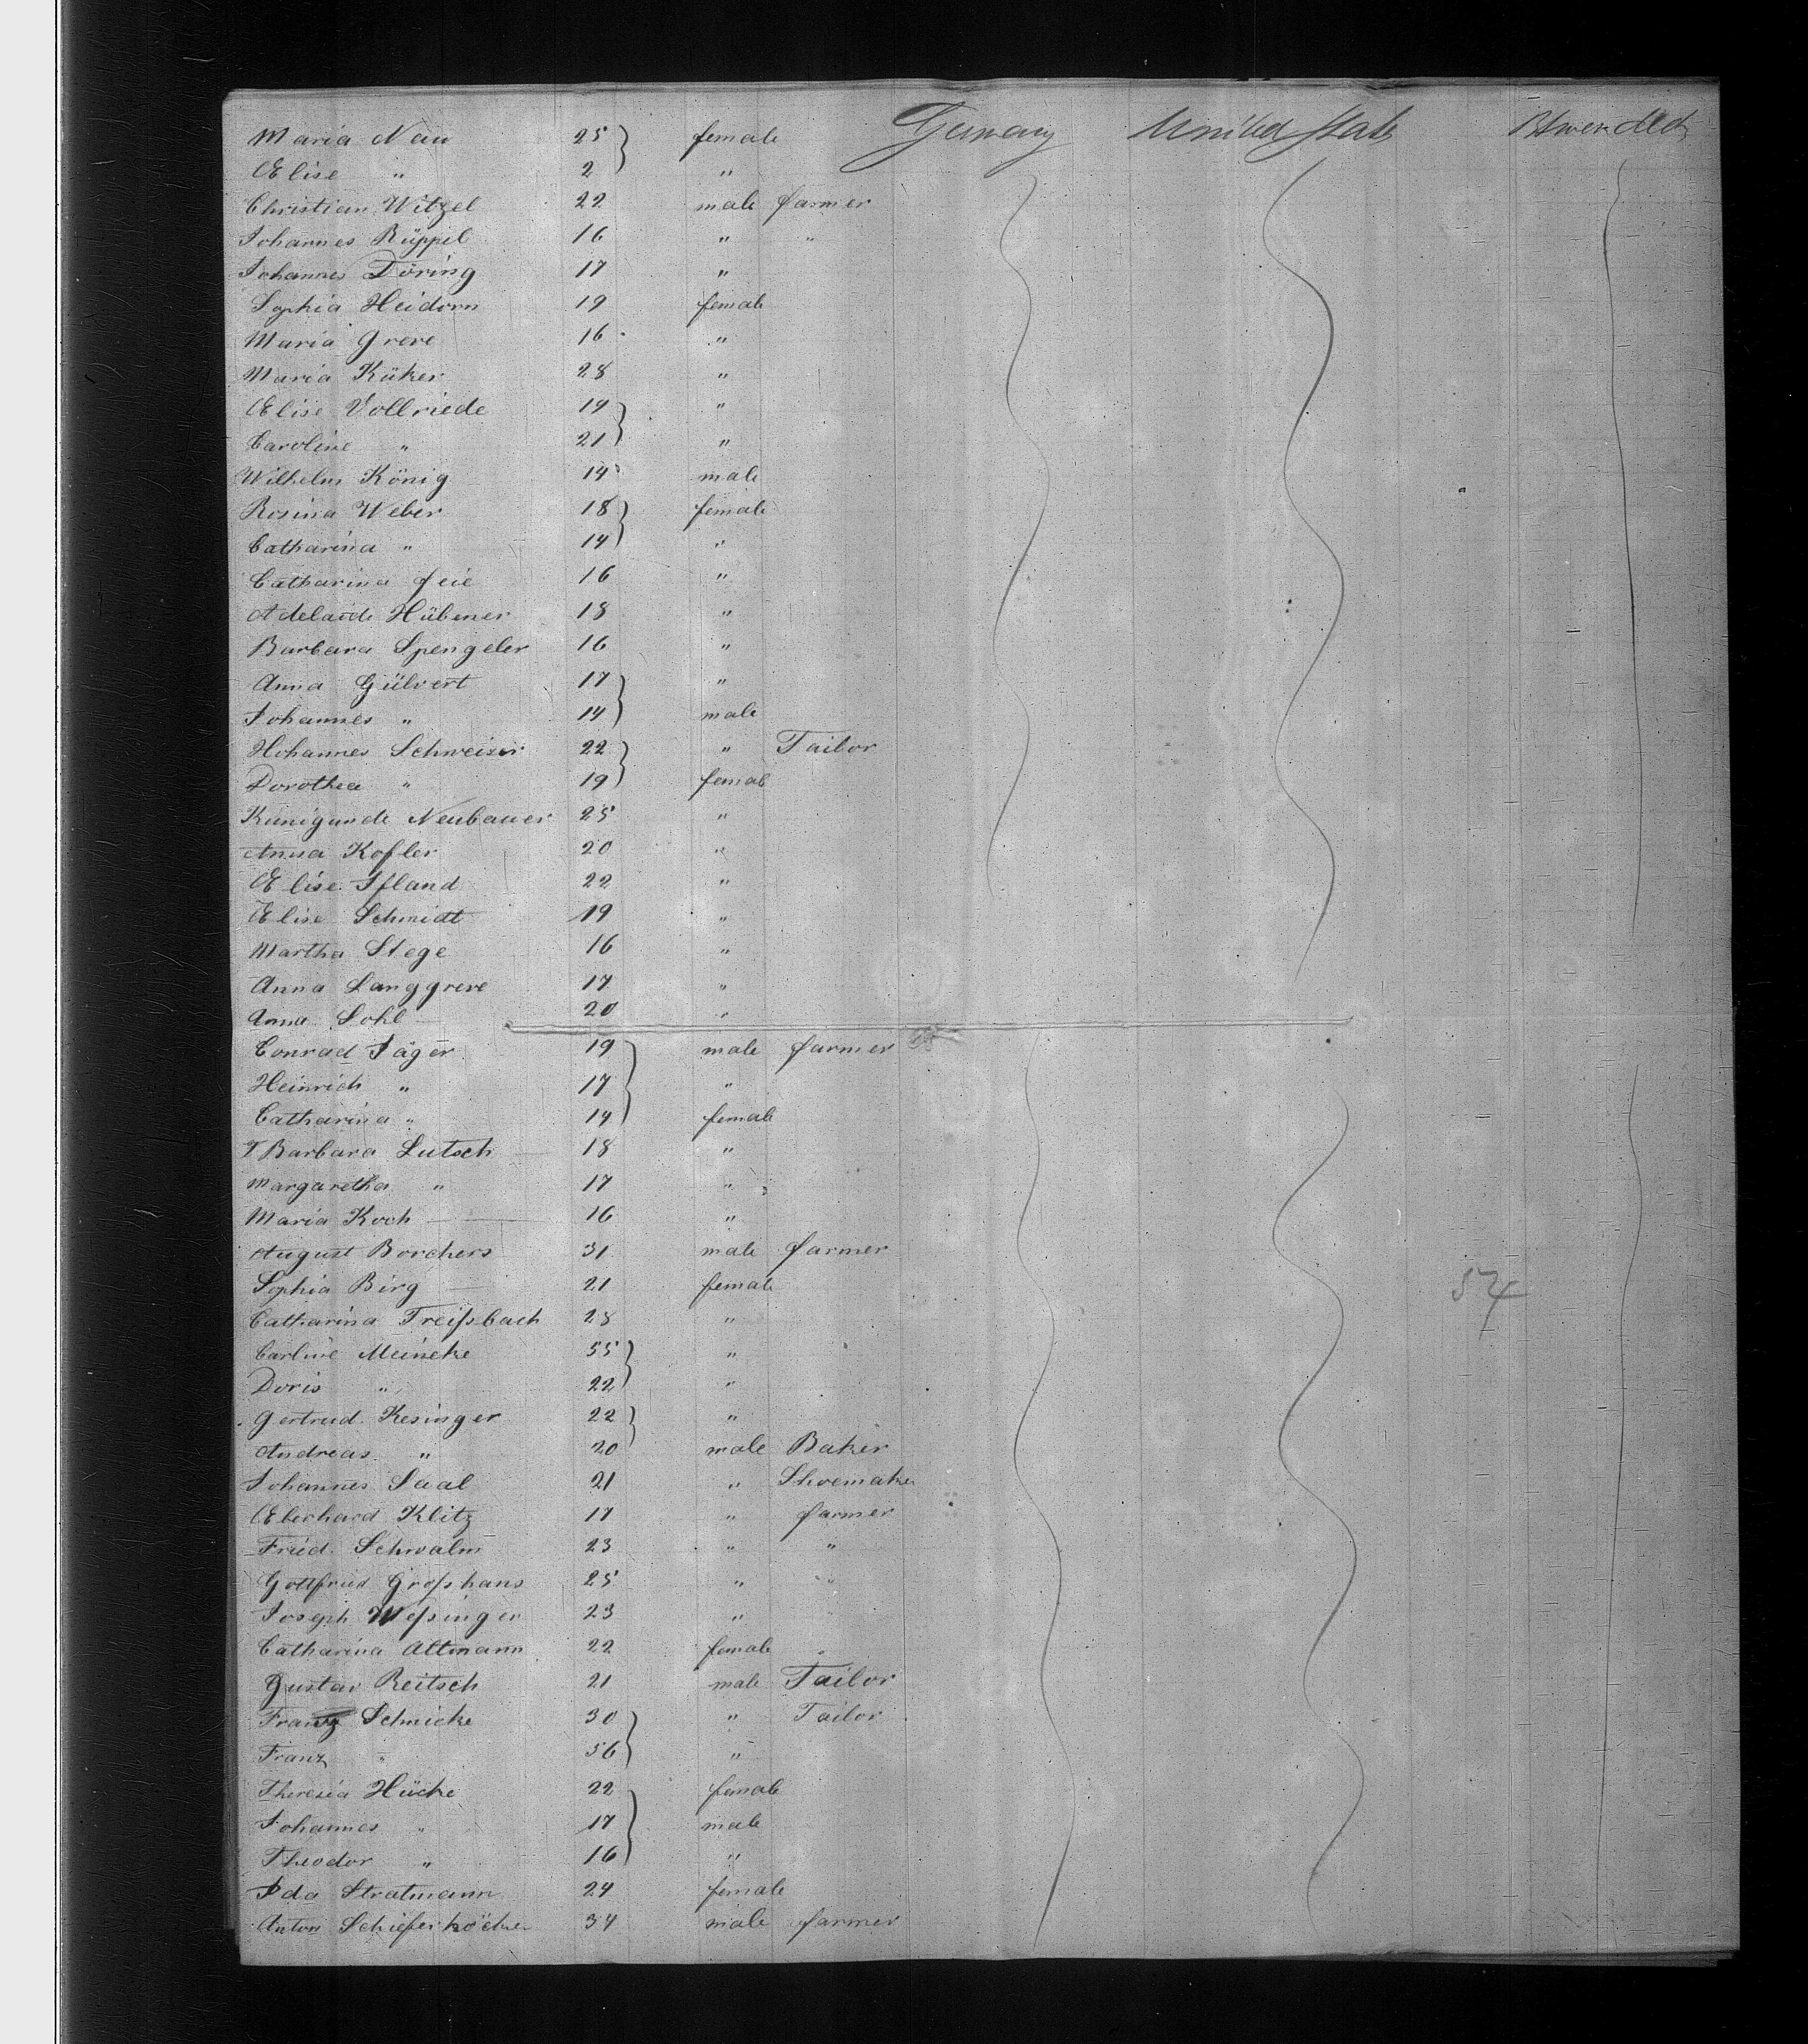 Maria Nau 25 } female Germany United States
Elise " 2 "
Christian Witzel 22 male farmer
Johannes Rüppel 16 " "
Johannes Döring 17 "
Sophia Heidorn 19 female
Maria Greve 16 "
Maria Küker 28 "
Elise Vollriede 19 } "
Caroline " 21 "
Wilhelm König 14 male
Rosina Weber 18 } female
Catharina " 14 "
Catharina Feie 16 "
Adelaide Hübener 18 "
Barbara Spengeler 16 "
Anna Gülvert 17 } "
Johannes " 14 male
Hohannes Schweiser 22 } " Tailor
Dorothea " 19 female
Kunigunde Neubauer 25 "
Anna Kofler 20 "
Elise Ifland 22 "
Elise Schmidt 19 "
Martha Stege 16 "
Anna Langgreve 17 "
Anna Sohl 20 "
Conrad Jäger 19 } male farmer
Heinrich " 17 "
Catharina " 14 female
Barbara Lutsch 18 "
Margaretha " 17 "
Maria Koch 16 "
August Borchers 31 male farmer
Sophia Birg 21 female
Catharina Treißbach 28 " 54
Carline Meineke 55 } "
Doris " 22 "
Gertrud Kesinger 22 } "
Andreas " 20 male Baker
Johannes Saal 21 " Shoemaker
Eberhard Klitz 17 " farmer
Fried. Schwalm 23 " "
Gottfried Großhans 25 " "
Joseph Weßinger 23 "
Catharina Altmann 22 female "
Gustav Reitsch 21 male Tailor
Franz Schmicke 30 } " Tailor
Franz " 56 "
Theresia Hücke 22 } female
Johannes " 17 male
Theodor " 16 "
Ida Stratmann 24 female
Anton 34 male farmer